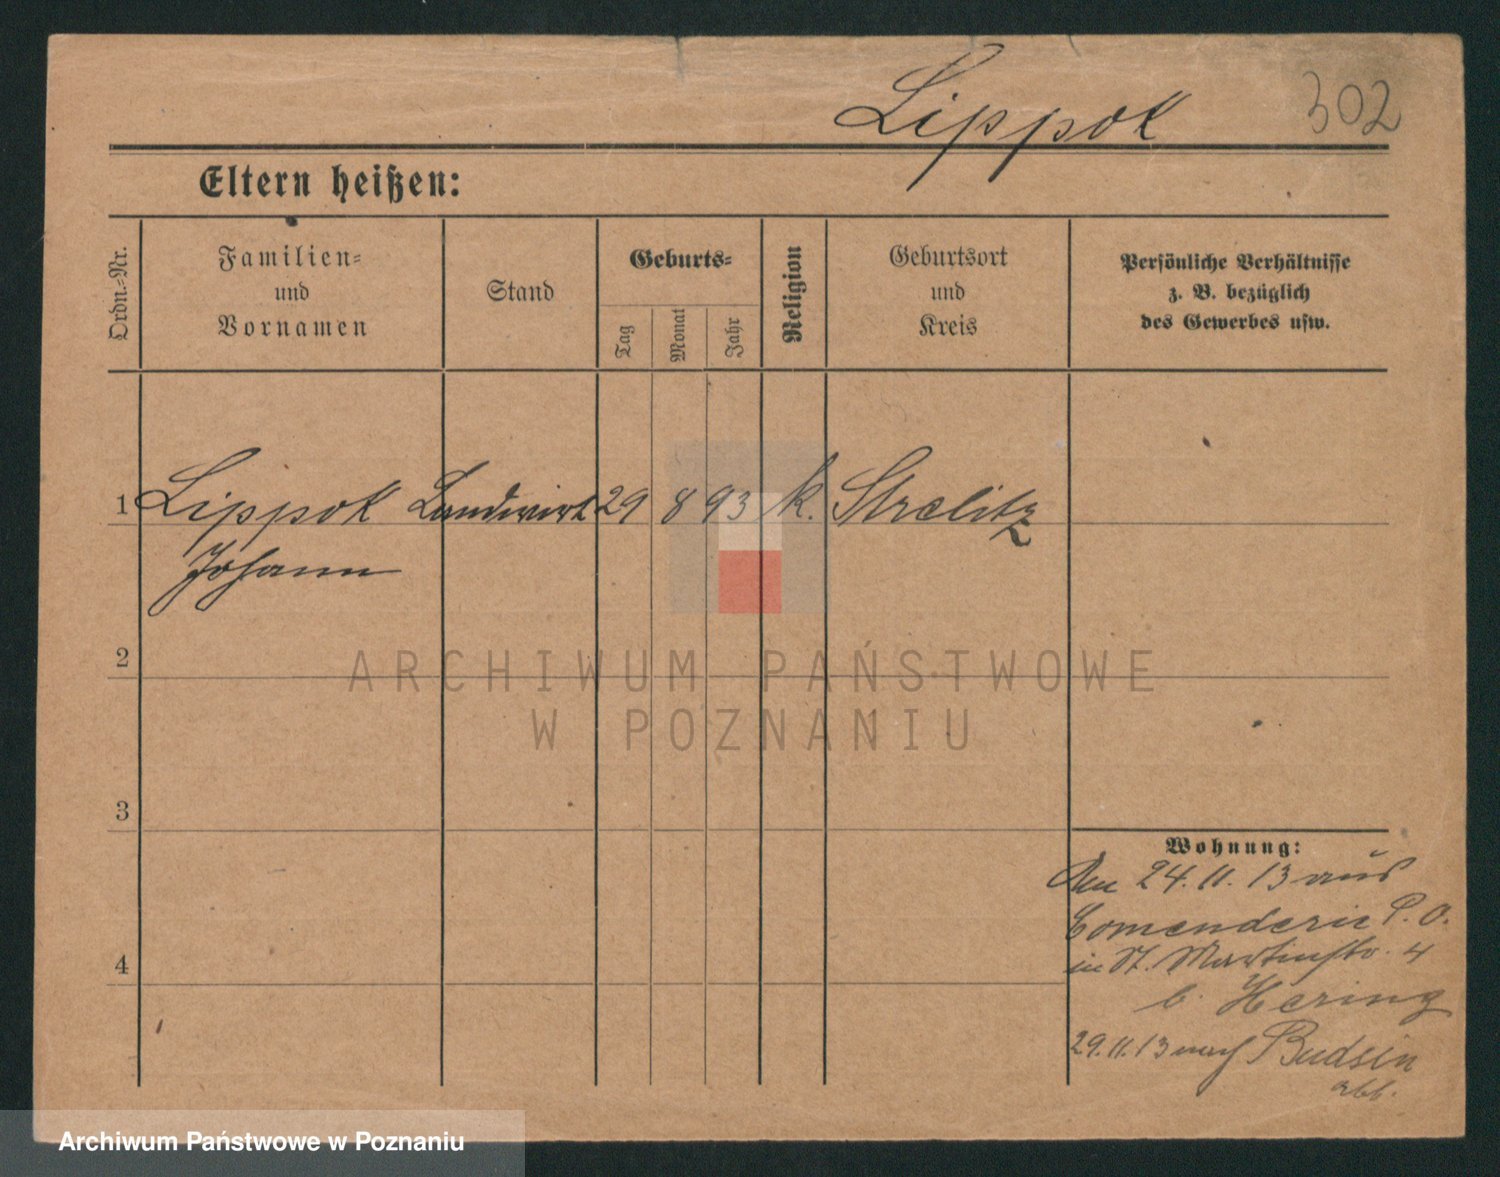 Lippok
302
Eltern heißen:
Ordn.-Nr.
Familien-
und
Vornamen
Stand
Geburts-
Tag
Monat
Jahr
Religion
Geburtsort
und
Kreis
Persönliche Verhältnisse
z. B. bezüglich
des Gewerbes usw.
1 Lippok Landwirt 29 8 93 k. Strelitz
Johann
2
3
4
Wohnung:
Den 24.11.13 aus
Comenderie P. O.
in St. Martinstr. 4
b. Hering
29.11.13 nach Budsin
abb.
ARCHIWUM PAŃSTWOWE
W POZNANIU
Archiwum Państwowe w Poznaniu